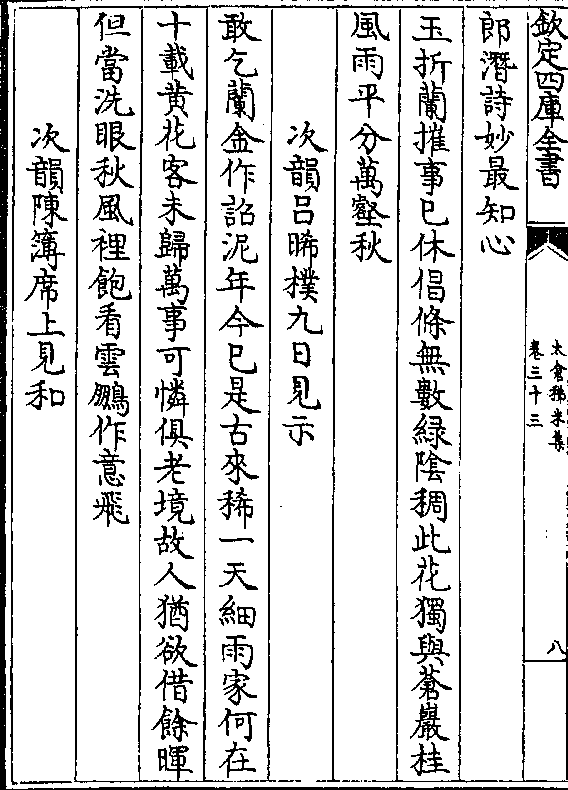 欽定四庫全書
太倉稊米集
卷三十三
八
郎潛詩妙最知心
玉折蘭摧事已休倡條無數緑陰稠此花獨與蒼巖桂
風雨平分萬壑秋
次韻吕晞樸九日見示
敢乞蘭金作詔泥年今已是古來稀一天細雨家何在
十載黄花客未歸萬事可憐俱老境故人猶欲借餘暉
但當洗眼秋風裡飽看雲鵬作意飛
次韻陳簿席上見和